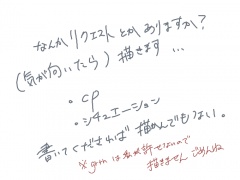 なんかリクエストとかありますか?
(気が向いたら)描きます…
・CP
・シチュエーション
書いてくだされば描かんでもない。
※gthは私が許せないので
描きません ごめんね